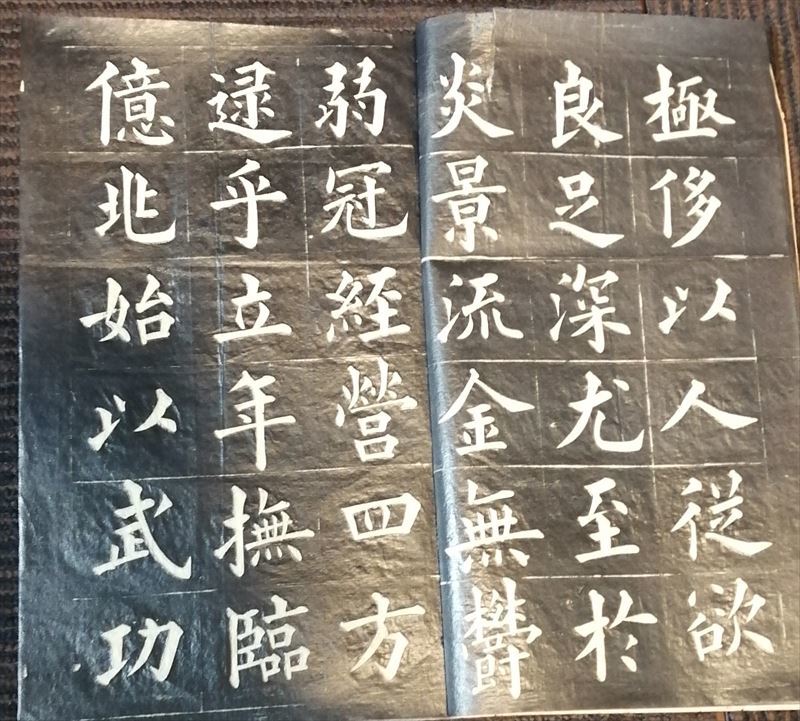 極侈以人從欲
良足深尤至於
炎景流金無欝
弱冠經營四方
逮乎立年撫臨
億兆始以武功